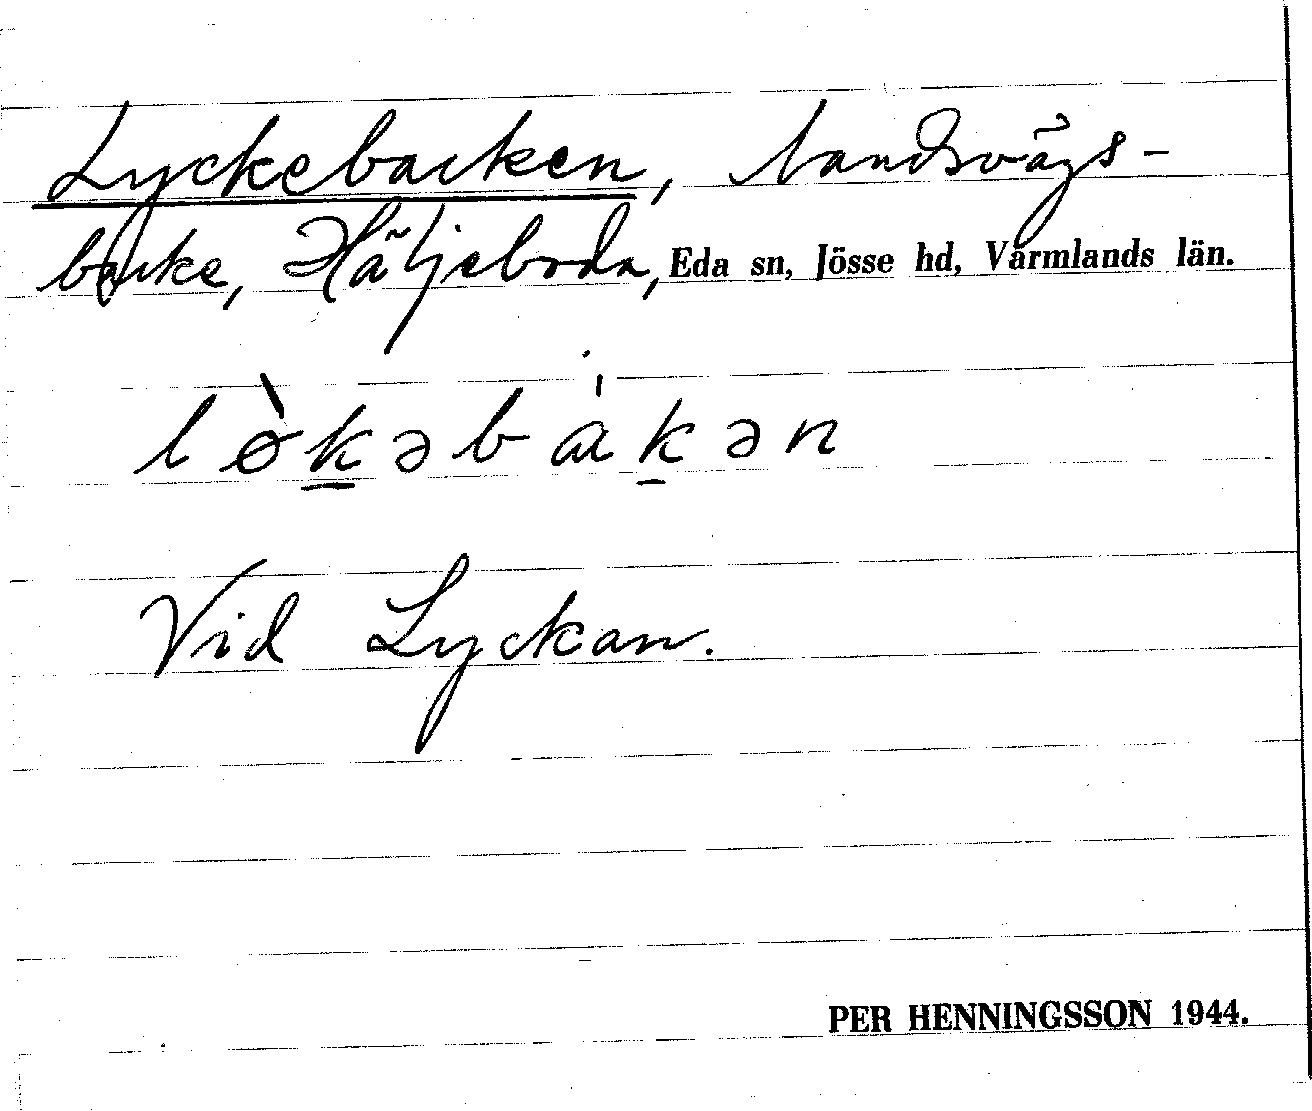 Lyckebacken, landsvägs-
backe, Häljeboda, Eda sn, Jösse hd, Värmlands län.
lø̀k̠əbàk̠ən
Vid Lyckan.
PER HENNINGSSON 1944.